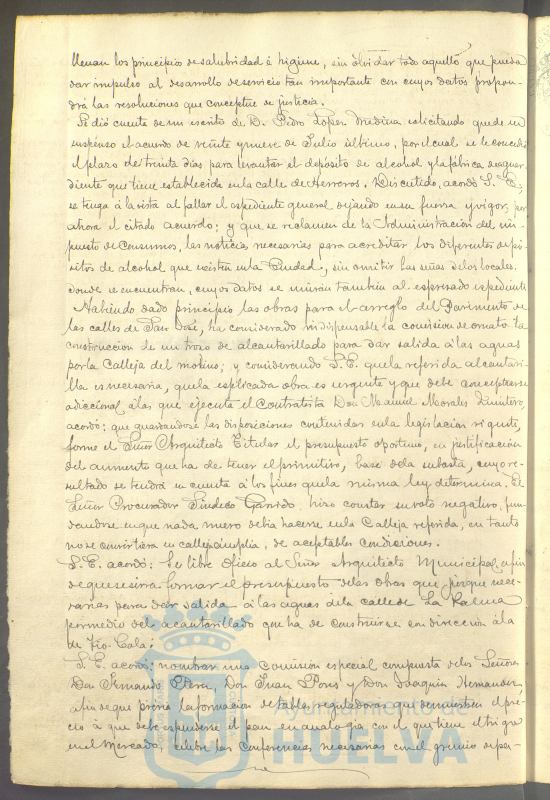 llenan los principios de salubridad é higiene, sin olvidar todo aquello que pueda
dar impulso al desarrollo de servicio tan importante con cuyos datos propon-
drá las resoluciones que conceptue de justicia.
Se dió cuenta de un escrito de D. Pedro Lopez Medina solicitando quede en
suspenso el acuerdo de veinte y nueve de Julio último, por el cual se le concedió
el plazo de treinta dias para levantar el depósito de alcohol y la fábrica de aguar
diente que tiene establecida en la calle de Herreros. Discutido, acordó S. E.,
se tenga á la vista al fallar el espediente general dejando en su fuerza y vigor por
ahora el citado acuerdo; y que se reclamen de la Administración del im-
puesto de Consumos, las noticias necesarias para acreditar los diferentes depó-
sitos de alcohol que existen en la Ciudad, sin omitir las señas de los locales
donde se encuentran, cuyos datos se unirán tambien al espresado espediente
Habiendo dado principio las obras para el arreglo del Pavimento de
las calles de San José, ha considerado indispensable la comision de ornato la
construccion de un trozo de alcantarillado para dar salida á las aguas
por la Calleja del molino; y considerando S. E. que la referida alcantari-
lla es necesaria, que la esplicada obra es urgente y que debe conceptuarse
adiccional á las que ejecuta el Contratista Don Manuel Morales Quintero,
acordó: que guardandose las disposiciones contenidas en la legislacion vigente,
forme el Señor Arquitecto Titular el presupuesto oportuno, en justificación
del aumento que ha de tener el primitivo, base de la subasta, cuyo re-
sultado se tendrá en cuenta á los fines que la misma ley determina. El
Señor Procurador Sindico Garrido, hizo constar su voto negativo, fun-
dandose en que nada nuevo debia hacerse en la Calleja referida, en tanto
no se convirtiera en calle amplia, de aceptables condiciones.
S. E. acordó: Se libre oficio al Señor Arquitecto Municipal, a fin
de que se sirva formar el presupuesto de las obras que juzgue nece-
sarias para dar salida á las aguas de la calle de La Palma
por medio del alcantarillado que ha de construirse con direccion á la
de Tio Cala.
S. E. acordó: nombrar una comision especial compuesta de los Señores
Don Fernando Don Juan Pons y Don Joaquin Hernandez
á fin de que previa la formacion de tabla reguladora que demuestren el pre-
cio á que debe espenderse el pan en analogia con el que tiene el trigo
en el Mercado, celebre las Conferencias necesarias con el gremio de pa-
Ayuntamiento de
HUELVA